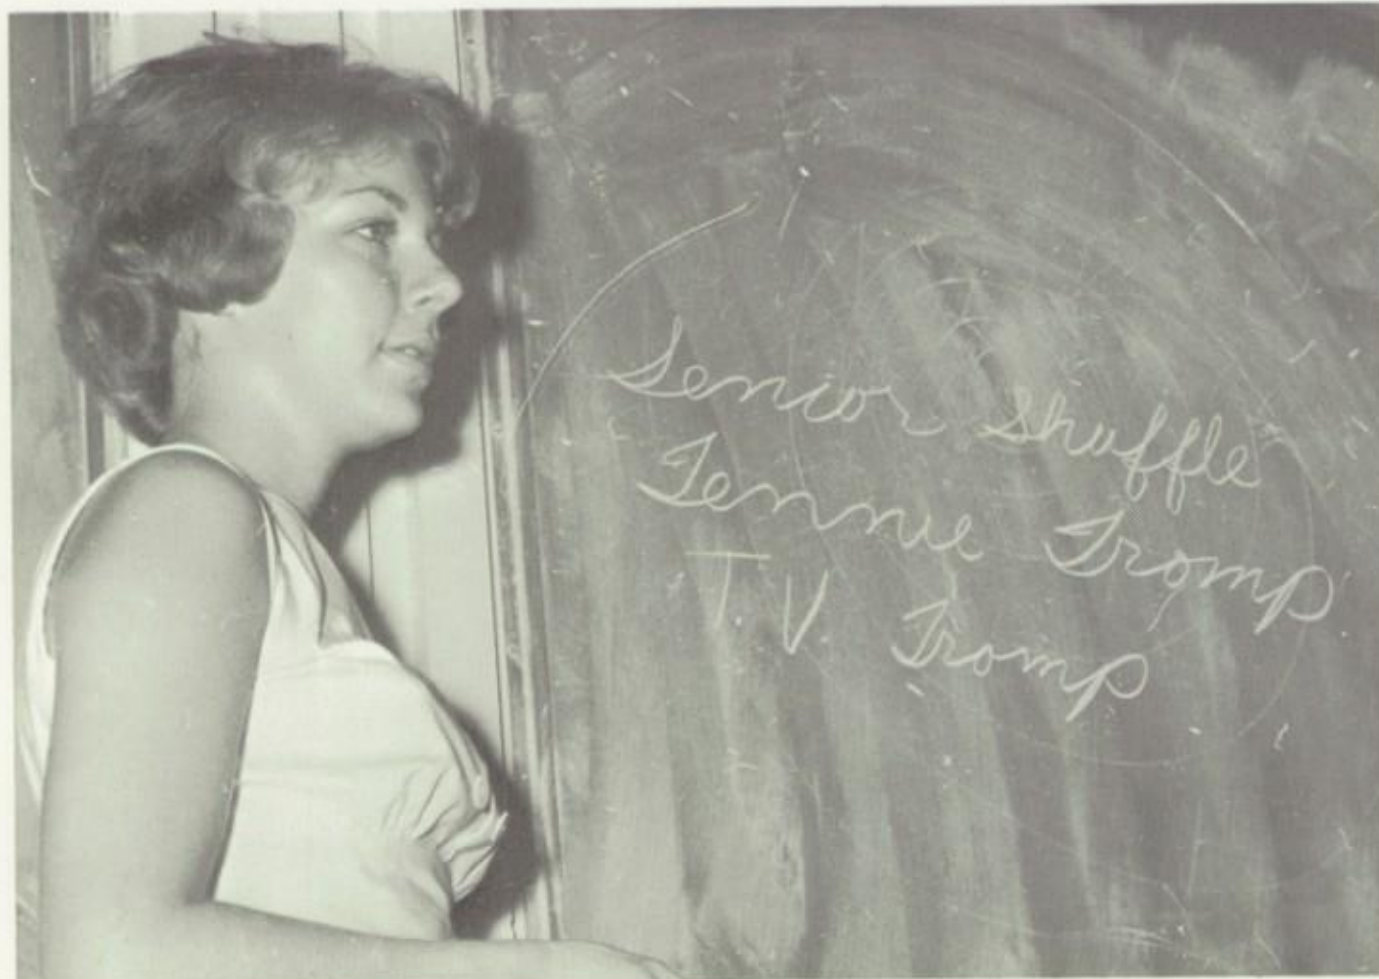 Senior Shuffle
Tennie Tromp
T.V. Tromp